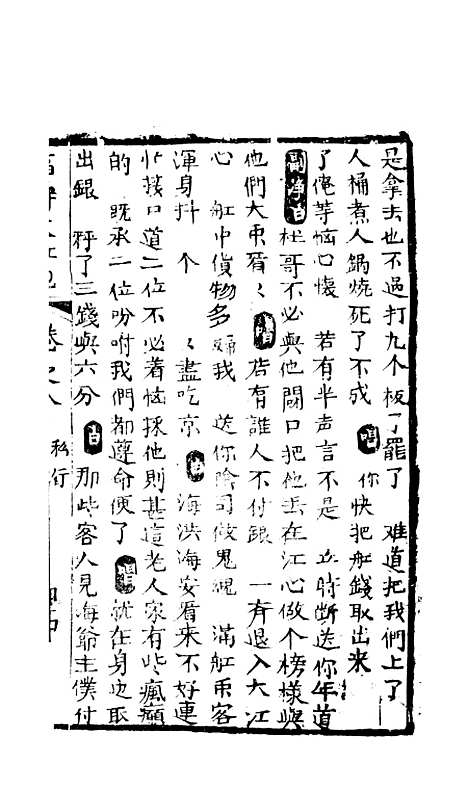 是拿去也不過打九个板了罷了　难道把我們上了
人桶煮人鍋燒死了不成　唱　你快把舡錢取出來
了俺等惱心懷　若有半声言不是　立時断送你年道
副净白　杜哥不必與他閗口把他丢在江心做个榜樣與
他們大束看〻　唱　若有誰人不付銀　一斉退入大江
心　舡中貨物多　我　送你陰司做鬼魂　滿舡乘客
渾身抖　个〻盡吃京　白　海洪海安看來不好連
忙接口道二位不必着恼採他則甚這老人家有些瘋顛
的　既承二位吩咐我們都尊命便了　唱　就在身边取
出銀　秤了三錢與六分　白　那些客人見海爺主僕付
卷之八　私行